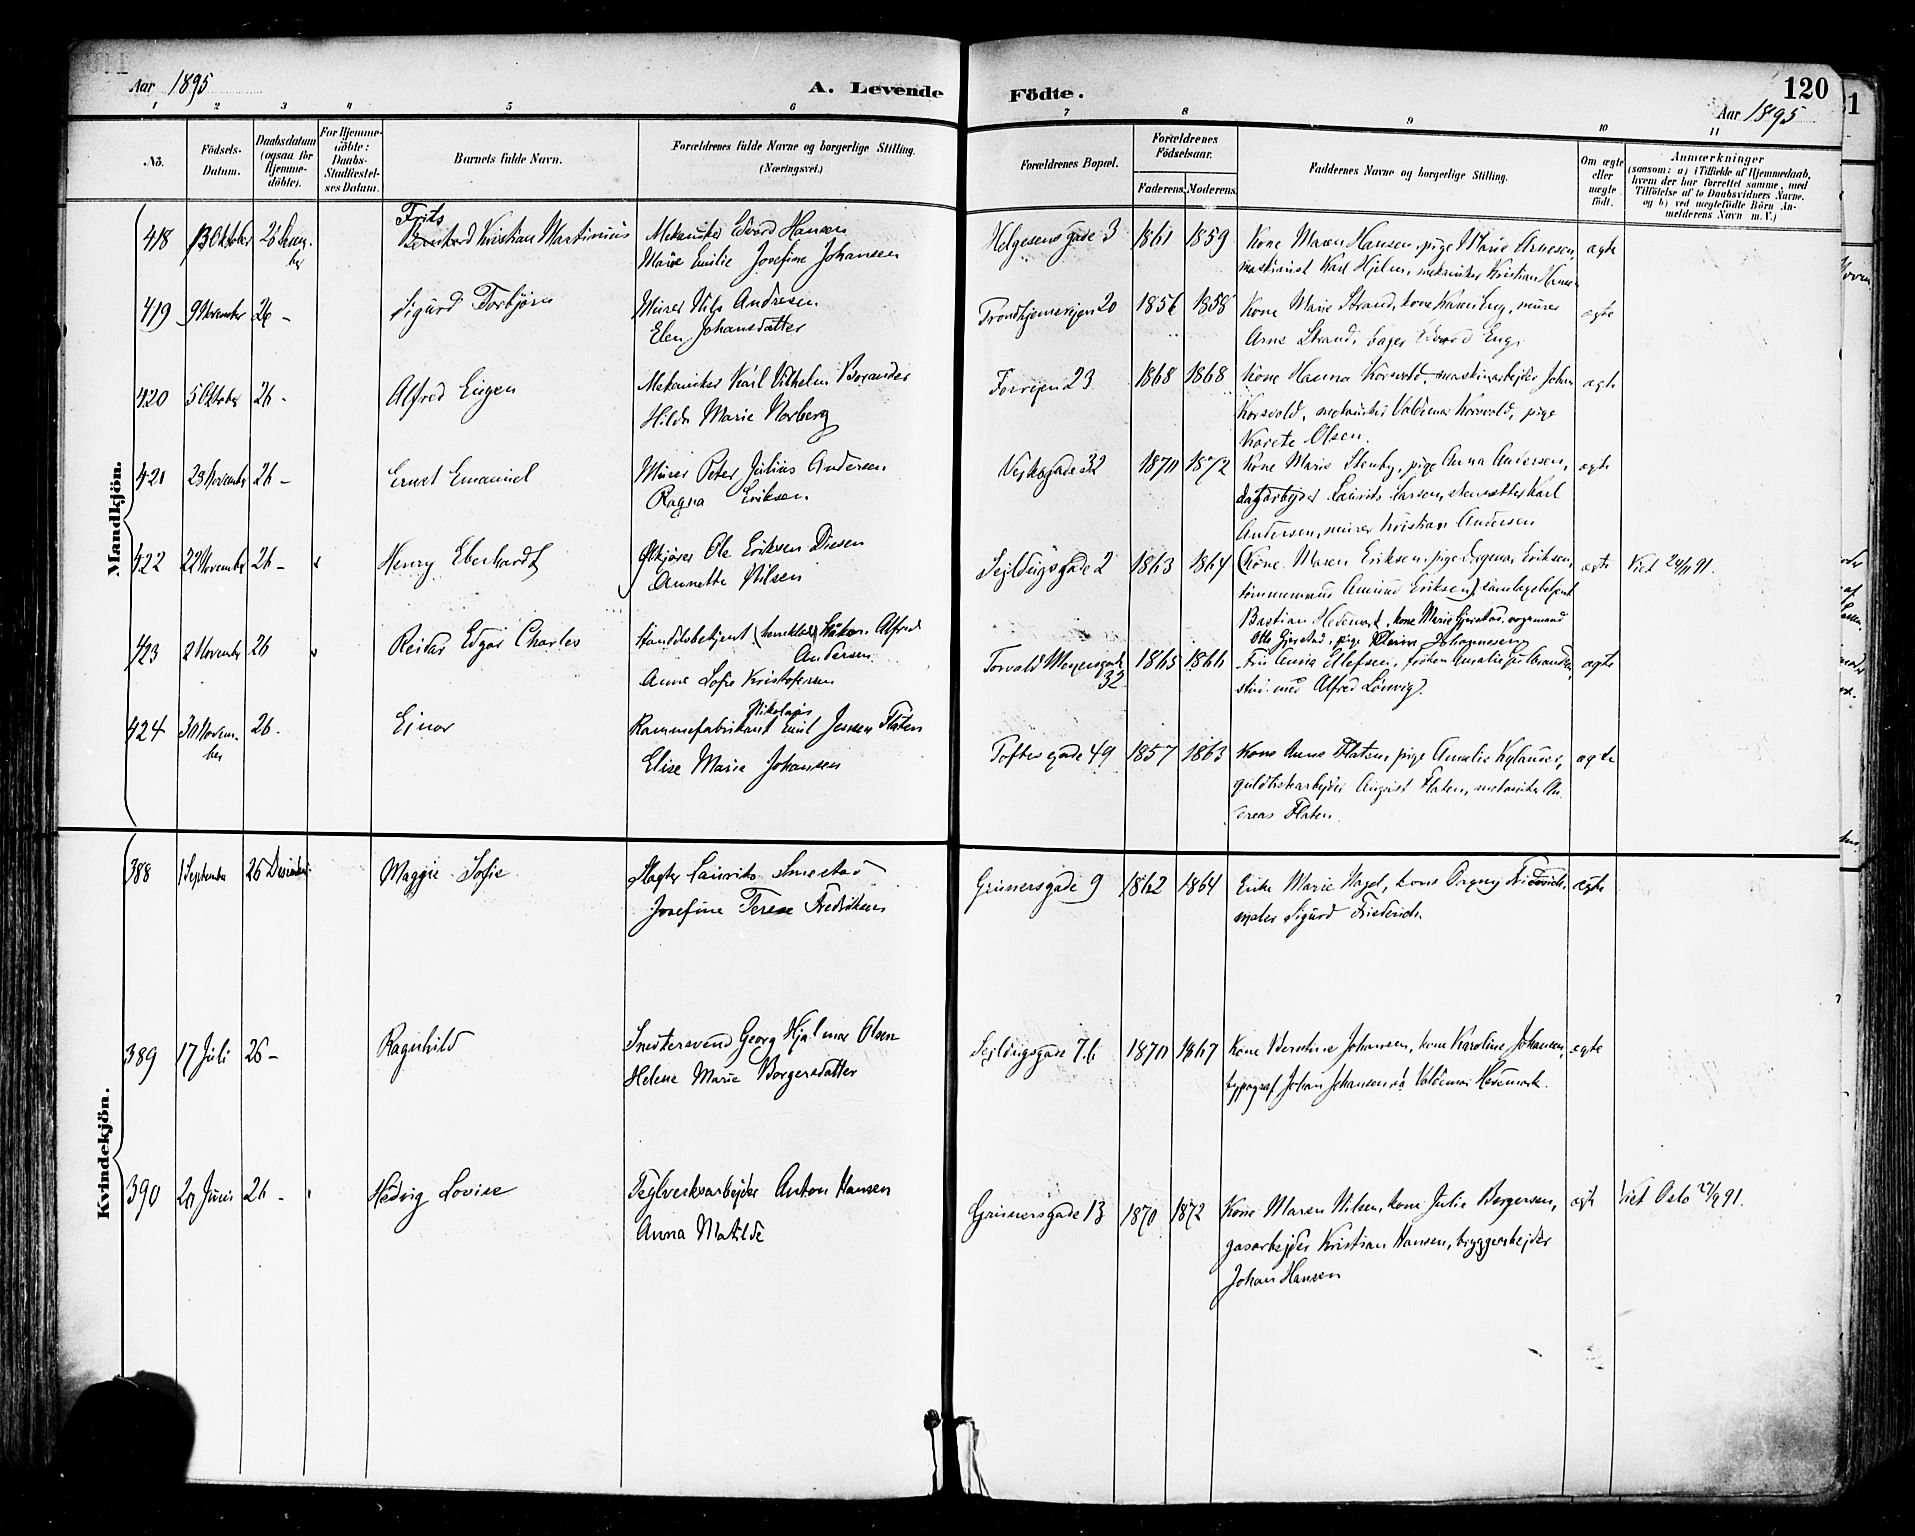 Aar 1895
A. Levende Födte.
120
Aar 1895
1 2 3 4 5 6 7 8 9 10 11
No.
Födsels-Datum.
Daabsdatum (ogsaa for Hjemme-döbte).
For Hjemme-döbte: Daabs-Stadfæstel-ses Datum.
Barnets fulde Navn.
Forældrenes fulde Navne og borgerlige Stilling. (Næringsvei.)
Forældrenes Bopæl.
Forældrenes Födselsaar.
Faderens. Moderens.
Faddernes Navne og borgerlige Stilling.
Om ægte eller uægte födt.
Anmærkninger
(saasom: a) i Tilfælde af Hjemmedaab, hvem der har forrettet samme, med Tilföielse af Daabsvidners Navne. og b) ved uegtefödte Börn An-melderens Navn m. V.)
Mandkjön.
418 13 Oktober 26 Frits Kristian Martinius Mekaniker Edvard Hansen Helgesens gade 3 1861 1859 Kone Maren Hansen, pige Marie Arnesen, ægte
Marie Emilie Josefine Johansen maskinist Karl Hjelm, mekaniker Kristian
419 9 November 26 - Sigurd Torbjörn Murer Nils Andresen Trondhjemsvejen 20 1856 1858 Kone Marie Strand, kone Karen Eng, murer ægte
Elen Johansdatter Arne Strand, bager Edvard Eng.
420 5 Oktober 26 - Alfred Eugen Mekaniker Karl Vilhelm Forvejen 23 1868 1868 Kone Hanna Korsvold, maskinarbejder Johan ægte
Hilda Marie Norberg Korsvold, mekaniker Valdemar Korsvold, pige
Karete Olsen.
421 23 November 26 - Ernst Emanuel Murer Peter Julius Andersen 32 1870 1872 Kone Marie Stenby, pige Anna Andersen, ægte
Ragna Eriksen dagarbejder Laurits Larsen, stensætter Karl
Andersen, murer Kristian Andersen
422 22 November 26 - Henry Eberhardt Ölkjörer Ole Eriksen Diesen Sejldugsgade 2 1863 1864 Kone Maren Eriksen, pige Dagmar Eriksen, ægte
Annette Nilsen tömmermand Amund Eriksen,
Bastian Hedemark, kone Marie Gjerstad, vognmand
Otto Gjerstad, pige Johannesen
423 2 November 26 Reidar Edgar Charles Handelsbetjent Håkon Alfred Torvald Meyersgade 1865 1866 Fru Anna Ellefsen, fröken Amalie ægte
Andersen 32
Anne Sofie Kristofersen stud. med Alfred
424 30 Novem-ber 26. Einar Rammefabrikant Nikolais Emil Jensen Flaten Toftesgade 49 1857 1863 Kone Anna Flaten, pige Amalie Kylander, ægte
Elise Marie Johansen guldlistarbejder August Flaten, mekaniker An-
dreas Flaten
Kvindekjön.
388 1 September 26 Desember Maggie Sofie Slagter Laurits Smestad Grünersgade 9 1862 1864 Enke Marie Hagel, kone Dagny Friederich, ægte
Josefine Terese Fredriksen maler Sigurd Friederich.
389 17 Juli 26 - Ragnhild Snedkersvend Georg Hjalmar Olsen Sejldugsgade 7b 1870 1867 Kone Berntine Johansen, kone Karoline Johansen, ægte
Helene Marie Borgersdatter typograf Johan Johansen, Valdemar Hedemark.
390 20 Juni 26 - Hedvig Lovise Teglverksarbejder Anton Hansen Grünersgade 13 1870 1872 Kone Maren Nilsen, kone Julie Borgersen, ægte Viet Oslo
Anna Matilde gasarbejder Kristian Hansen, bryggearbejder
Johan Hansen